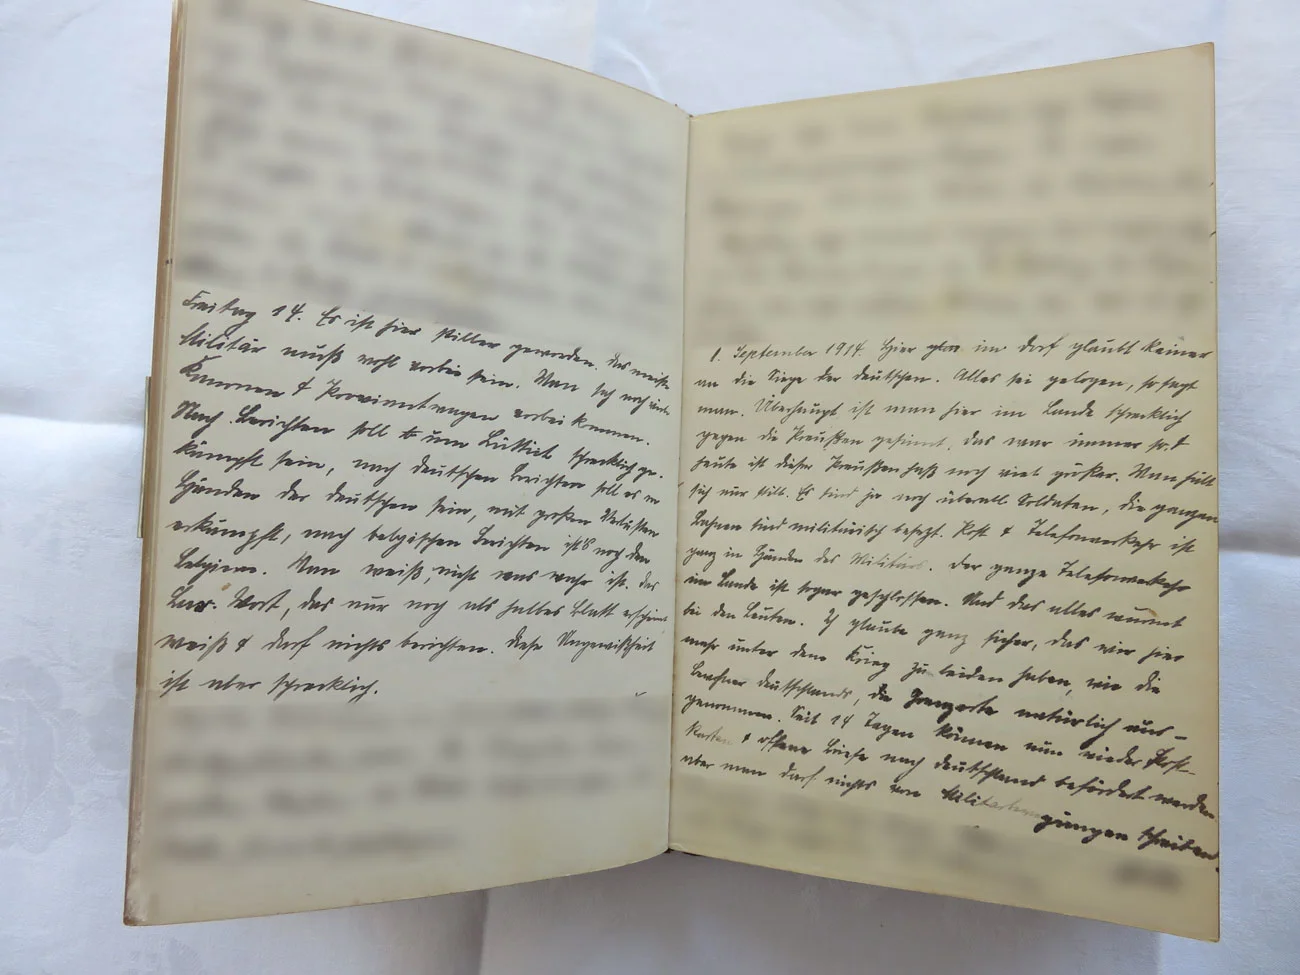 Freitag 14. Es ist hier stiller geworden. Das meiste
Militär muß wohl vorbei sein. Man sah noch viele
Kanonen & Proviantwagen vorbei kommen.
Nach Berichten soll es um Lüttich schrecklich ge-
kämpft sein, nach deutschen Berichten soll es in
Händen der deutschen sein, mit großen Verlusten
erkämpft, nach belgischen Berichten ist's noch den
Belgiern. Man weiß nicht was wahr ist. Das
Lux. Wort, das nur noch als halbes Blatt erscheint
weiß & darf nichts berichten. Diese Ungewißheit
ist aber schrecklich.
1. September 1914. Hier im Dorf glaubt keiner
an die Siege der deutschen. Alles sei gelogen, so sagt
man. Überhaupt ist man hier im Lande schrecklich
gegen die Preußen gesinnt, das war immer so &
heute ist dieser Preußenhaß noch viel größer. Man hält
sich nur still. Es sind ja noch überall Soldaten, die ganzen
Bahnen sind militärisch besezt. Post & Telefonverkehr ist
ganz in Händen des Militärs. Der ganze Telefonverkehr
im Lande ist sogar geschlossen. Und das alles wurmt
bei den Leuten. Ich glaube ganz sicher, das wir hier
mehr unter dem Krieg zu leiden haben, wie die
Bewohner Deutschlands, die Grenzorte natürlich aus-
genommen. Seit 14 Tagen können nun wieder Post-
karten & offene Briefe nach Deutschland befördert werden
aber man darf nichts von schreiben.